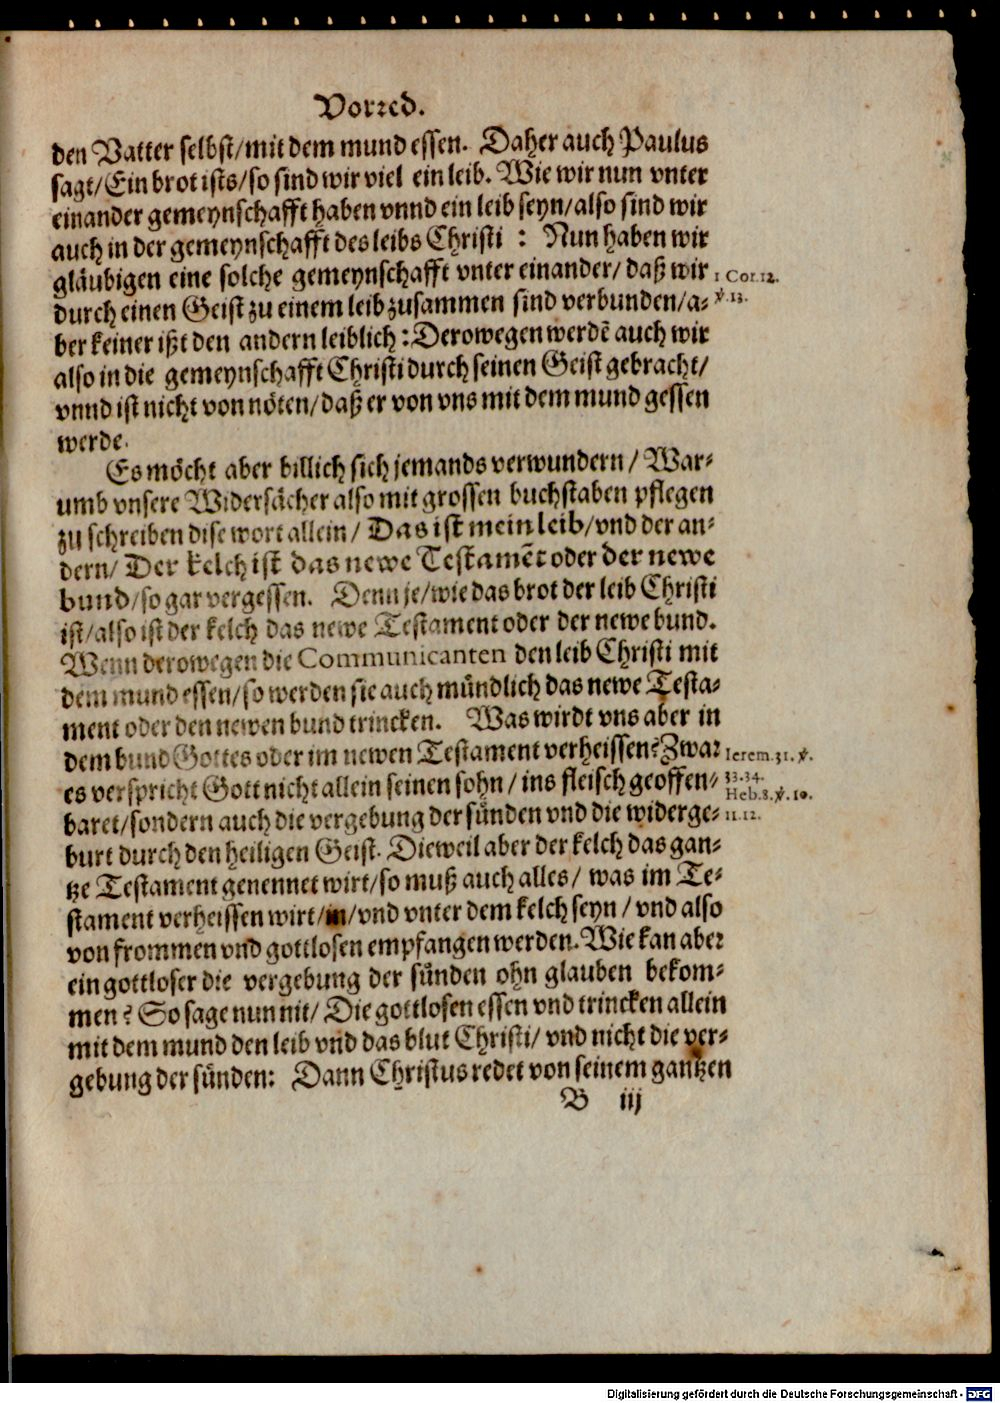 Vorred.
den Vatter selbst/mit dem mund essen. Daher auch Paulus
sagt/Ein brot ists/so sind wir viel ein leib. Wie wir nun vnter
einander gemeynschafft haben vnnd ein leib seyn/also sind wir
auch in der gemeynschafft des leibs Christi : Nun haben wir
gläubigen eine solche gemeynschafft vnter einander/ daß wir
1 Cor.12.
durch einen Geist zu einem leib zusammen sind verbunden/a-
℣.13.
ber keiner ißt den andern leiblich: Derowegen werdē auch wir
also in die gemeynschafft Christi durch seinen Geist gebracht/
vnnd ist nicht von nöten/daß er von vns mit dem mund gessen
werde.
Es möcht aber billich sich jemands verwundern / War-
umb vnsere Widersächer also mit grossen buchstaben pflegen
zu schreiben dise wort allein/ Das ist mein leib/vnd der an-
dern/ Der kelch ist das newe Testamēt oder der newe
bund/so gar vergessen. Denn je/wie das brot der leib Christi
ist/also ist der kelch das newe Testament oder der newe bund.
Wenn derowegen die Communicanten den leib Christi mit
dem mund essen/so werden sie auch mündlich das newe Testa-
ment oder den newen bund trincken. Was wirdt vns aber in
dem bund Gottes oder im newen Testament verheissen? Zwar
Ierem.31.℣.
es verspricht Gott nicht allein seinen sohn / ins fleisch geoffen-
33.34.
Heb.8.℣.10.
baret/sondern auch die vergebung der sünden vnd die widerge-
11.12.
burt durch den heiligen Geist. Dieweil aber der kelch das gan-
tze Testament genennet wirt/so muß auch alles/ was im Te-
stament verheissen wirt/in/vnd vnter dem kelch seyn / vnd also
von frommen vnd gottlosen empfangen werden. Wie kan aber
ein gottloser die vergebung der sünden ohn glauben bekom-
men? So sage nun nit/ Die gottlosen essen vnd trincken allein
mit dem mund den leib vn̄d das blut Christi/ vnd nicht die ver-
gebung der sünden: Dann Christus redet von seinem gantzen
B iij
Digitalisierung gefördert durch die Deutsche Forschungsgemeinschaft - DFG